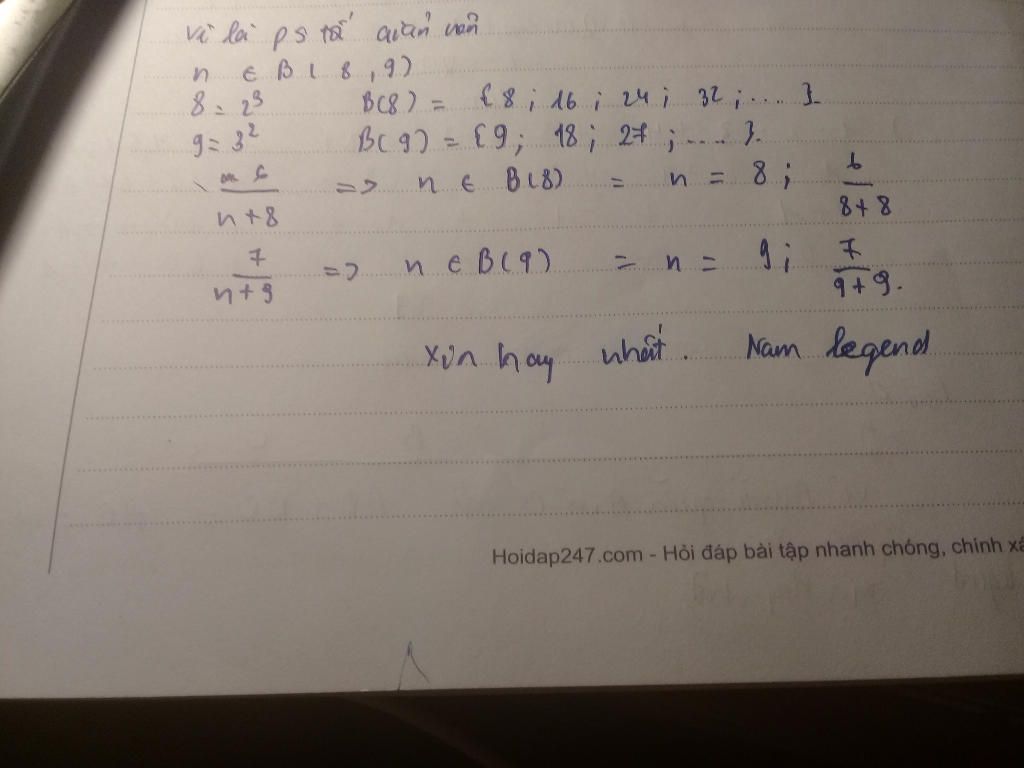 Vì là ps tối giản nên
n ∈ B ( 8 , 9 )
8 = 2³ B(8) = { 8 ; 16 ; 24 ; 32 ; ... }
9 = 3² B(9) = { 9 ; 18 ; 27 ; .... }.
6/n+8 => n ∈ B(8) = n = 8 ; 6/8+8
7/n+9 => n ∈ B(9) = n = 9 ; 7/9+9.
Xin hay nhất . Nam legend
Hoidap247.com - Hỏi đáp bài tập nhanh chóng, chính xá